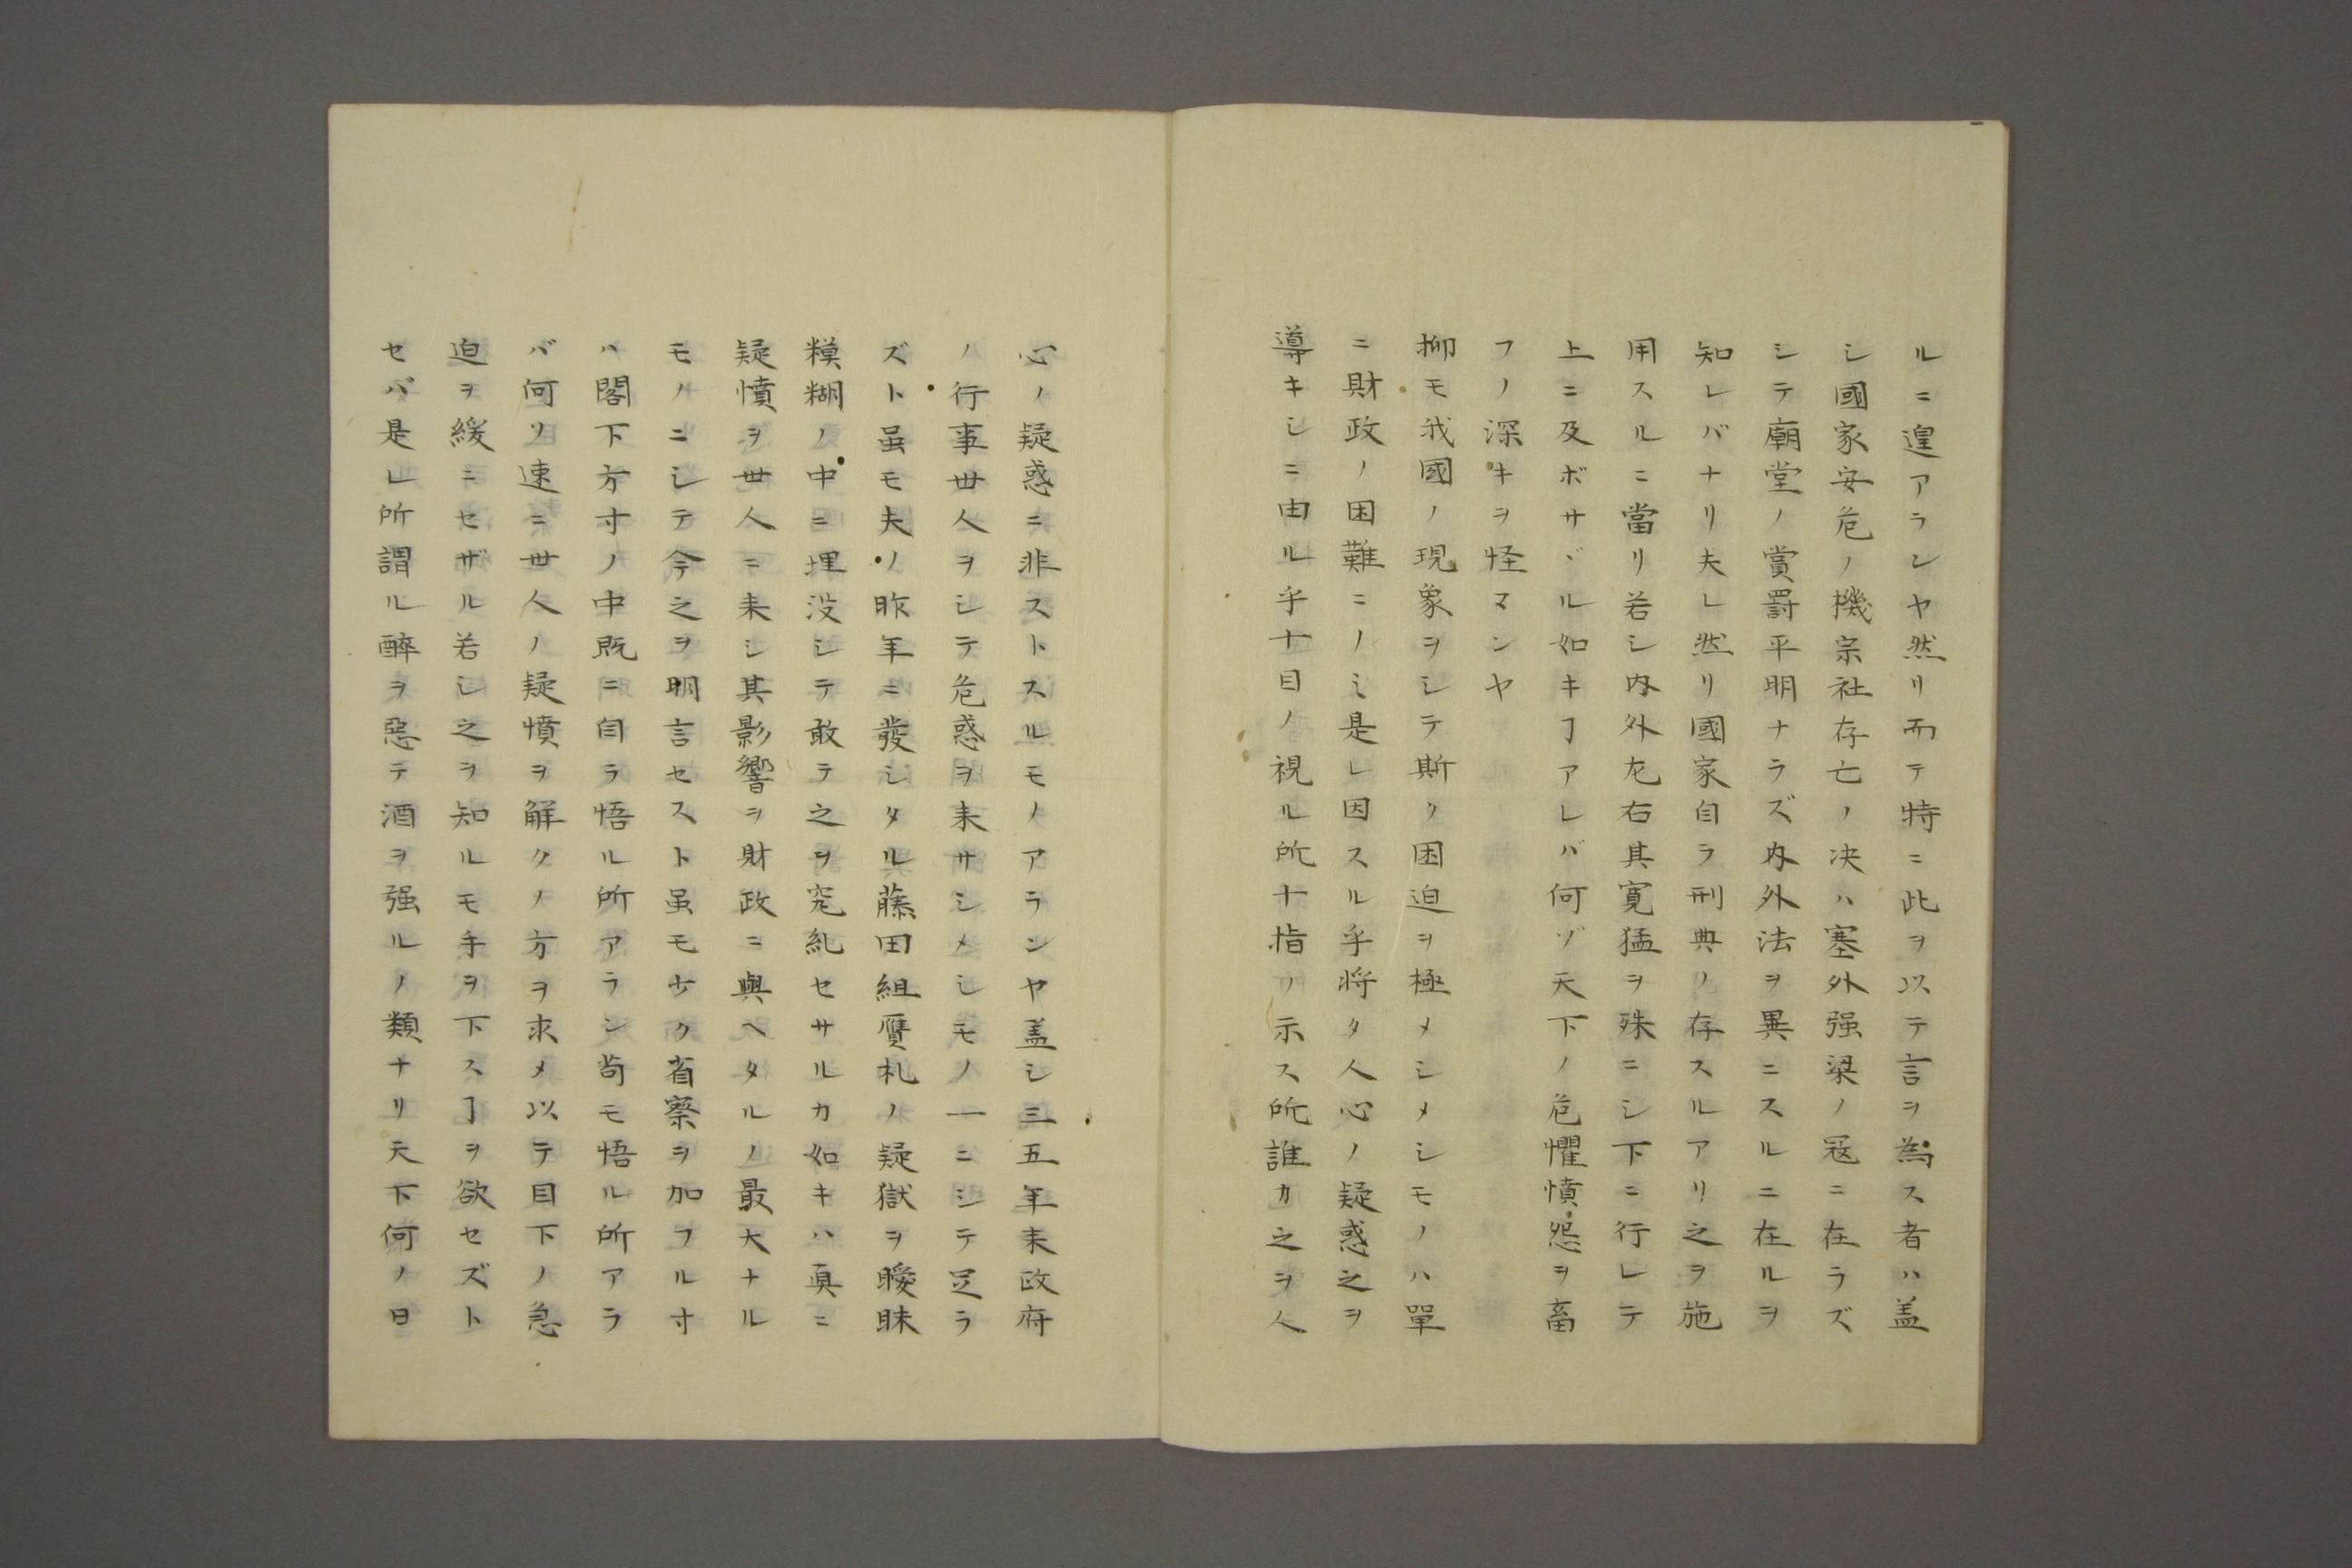 ルニ遑アランヤ然リ而テ特ニ此ヲ以テ言ヲ為ス者ハ盖
シ國家安危ノ機宗社存亡ノ决ハ塞外强梁ノ冦ニ在ラズ
シテ廟堂ノ賞罰平明ナラズ内外法ヲ異ニスルニ在ルヲ
知レバナリ夫レ然リ國家自ラ刑典ノ存スルアリ之ヲ施
用スルニ當リ若シ内外左右其寛猛ヲ殊ニシ下ニ行レテ
上ニ及ボサヾル如キヿアレバ何ゾ天下ノ危懼憤怨ヲ畜
フノ深キヲ怪マンヤ
抑モ我國ノ現象ヲシテ斯ク困迫ヲ極メシメシモノハ單
ニ財政ノ困難ニノミ是レ因スル乎将タ人心ノ疑惑之ヲ
導キシニ由ル乎十目ノ視ル所十指ノ示ス所誰カ之ヲ人
心ノ疑惑ニ非ストスルモノアランヤ盖シ三五年来政府
ノ行事世人ヲシテ危惑ヲ来サシメシモノ一ニシテ足ラ
ズト虽モ夫ノ昨年ニ發シタル藤田組贋札ノ疑獄ヲ曖昧
糢糊ノ中ニ埋没シテ敢テ之ヲ究糺セサルカ如キハ真ニ
疑憤ヲ世人ニ来シ其影響ヲ財政ニ與ヘタルノ最大ナル
モノニシテ今之ヲ明言セスト虽モ少ク省察ヲ加フル寸
ハ閣下方寸ノ中既ニ自ラ悟ル所アラン苟モ悟ル所アラ
バ何リ速ニ世人ノ疑憤ヲ解クノ方ヲ求メ以テ目下ノ急
迫ヲ緩ニセザル若シ之ヲ知ルモ手ヲ下スヿヲ欲セズト
セバ是レ所謂ル醉ヲ惡テ酒ヲ强ルノ類ナリ天下何ノ日